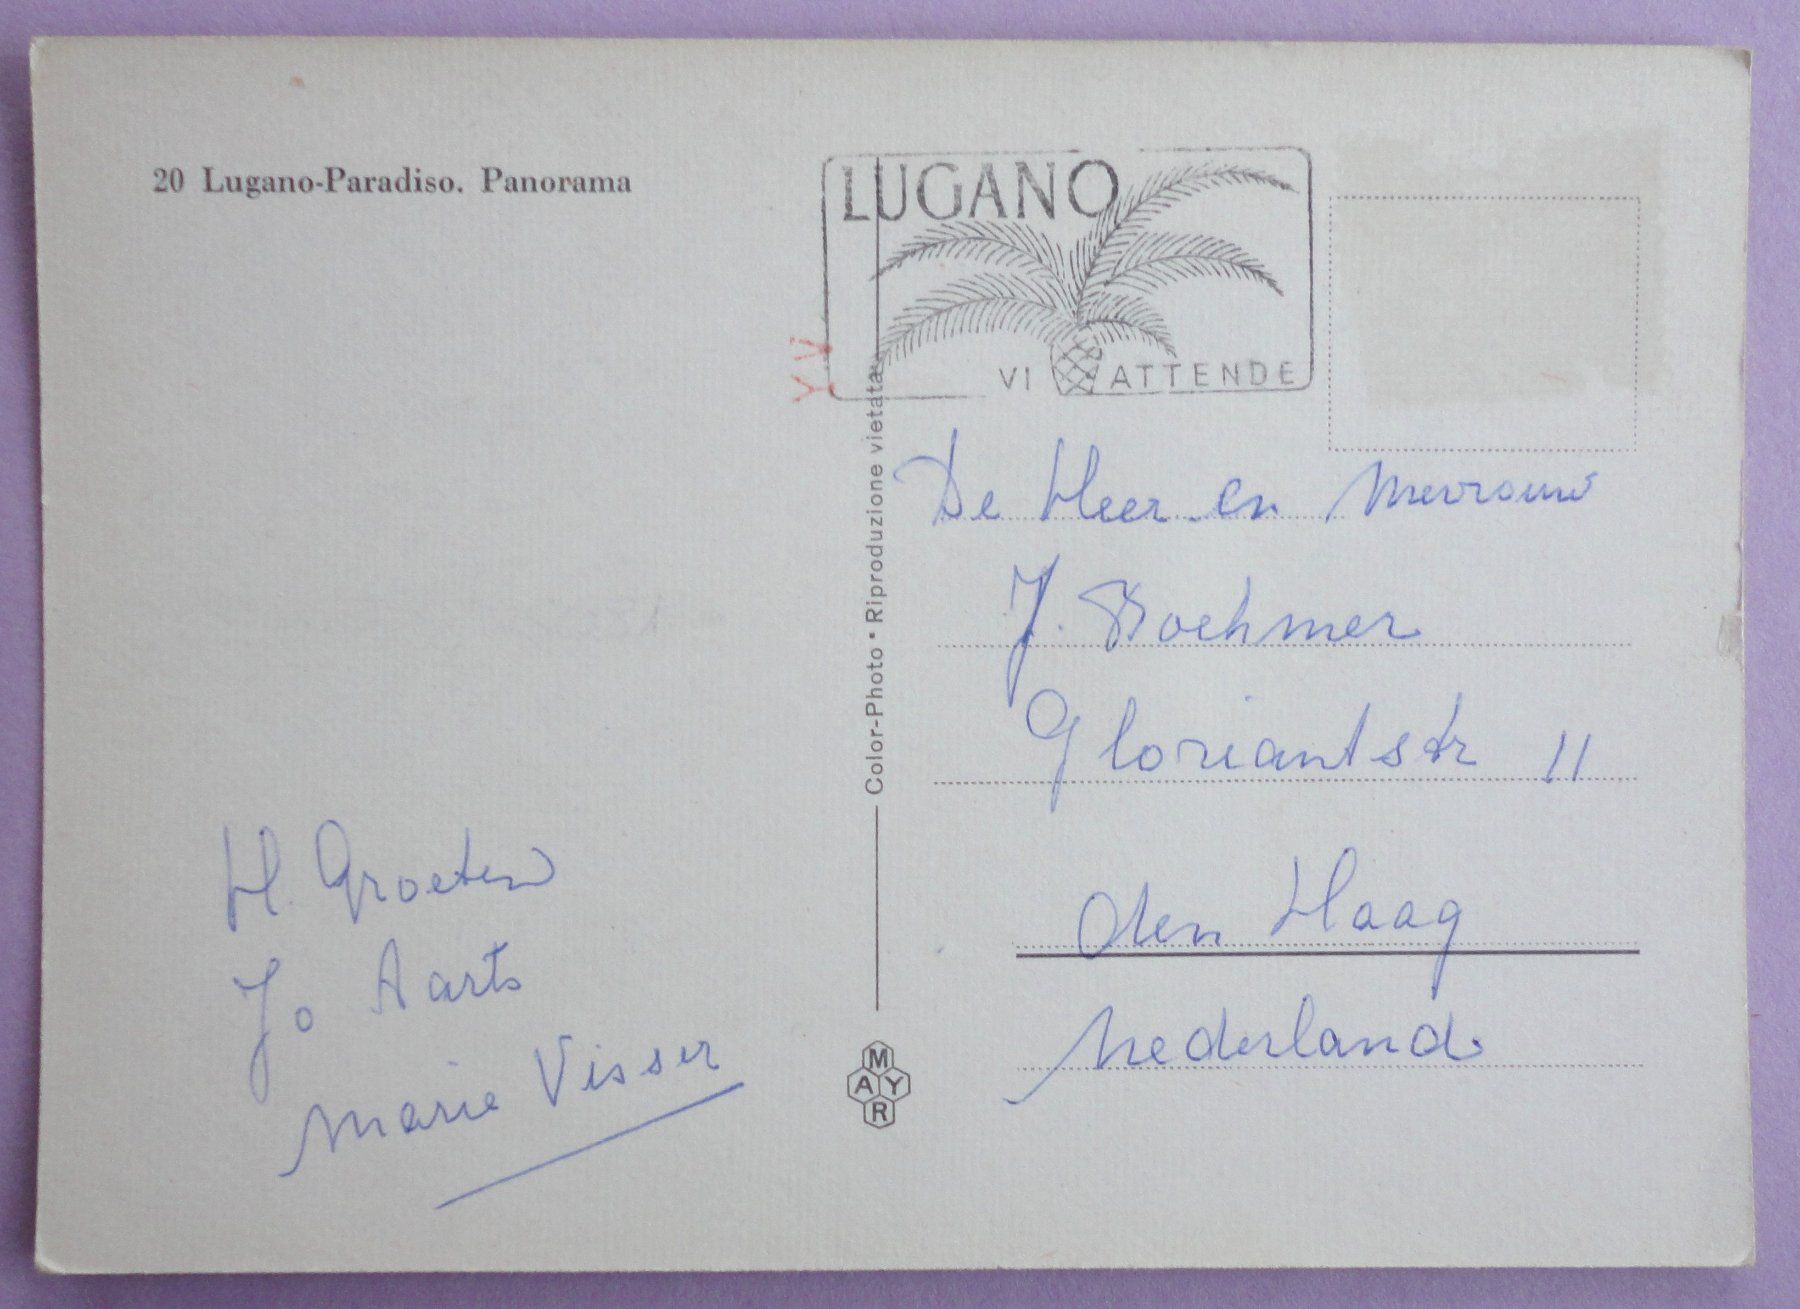 20 Lugano-Paradiso. Panorama
LUGANO
VI ATTENDE
Color-Photo • Riproduzione vietata
De Heer en Mevrouw
J. Boehmer
Gloriantstr 11
den Haag
Nederland
H. Groeten
Jo Aarts
Marie Visser
MAYR